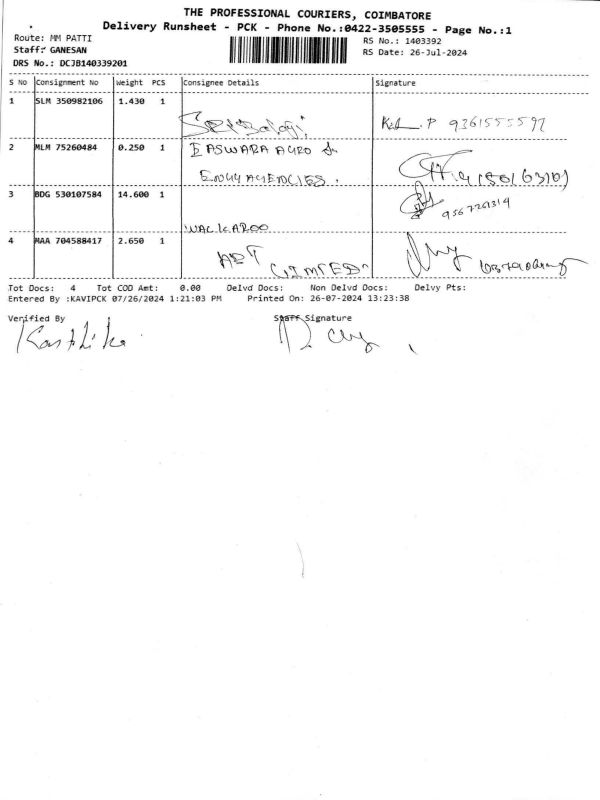 THE PROFESSIONAL COURIERS, COIMBATORE
Delivery Runsheet - PCK - Phone No.:0422-3505555 - Page No.:1
Route: MM PATTI
RS No.: 1403392
Staff: GANESAN
RS Date: 26-Jul-2024
DRS No.: DCJB140339201
S No Consignment No Weight PCS Consignee Details Signature
1 SLM 350982106 1.430 1
Sri Balaji
9361555597
2 MLM 75260484 0.250 1 EASWARA AGRO &
ENGG AGENCIES.
3 BDG 530107584 14.600 1
9567261314
WALKAROO
4 MAA 704588417 2.650 1
LIMITED
Tot Docs: 4 Tot COD Amt: 0.00 Delvd Docs: Non Delvd Docs: Delvy Pts:
Entered By :KAVIPCK 07/26/2024 1:21:03 PM Printed On: 26-07-2024 13:23:38
Verified By Staff Signature
Karthika